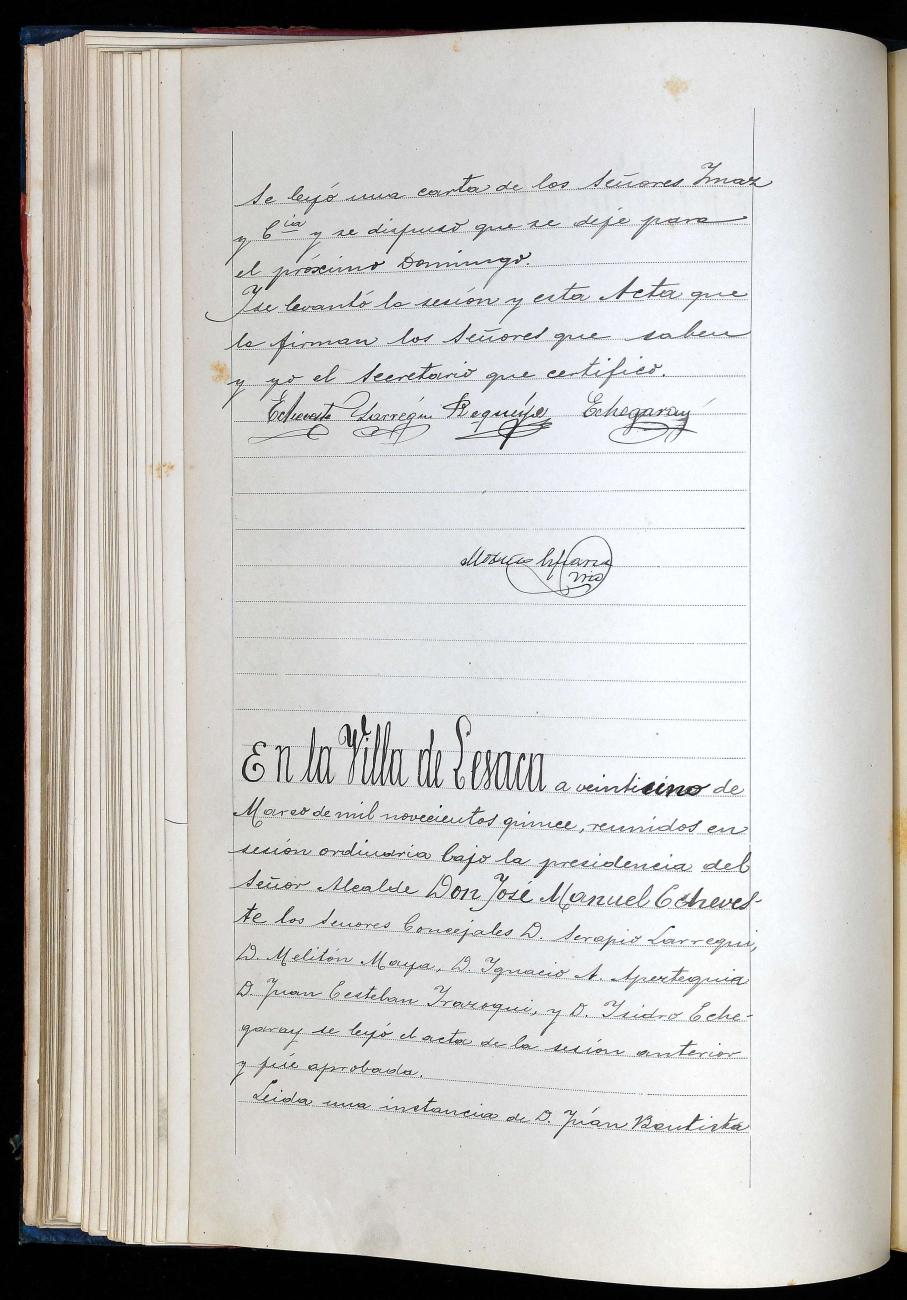 Se leyó una carta de los Señores Ymaz
y Cia y se dispuso que se deje para
el próximo Domingo.
Y se levantó la sesión y esta Acta que
la firman los Señores que saben
y yo el Secretario que certifico.
Echeveste Larregui Requijo Echegaray
En la Villa de Lesaca a veinticino de
Marzo de mil novecientos quince, reunidos en
sesión ordinaria bajo la presidencia del
Señor Alcalde Don José Manuel Echeves-
te los Señores Concejales D. Serapio Larregui,
D. Melitón Maya, D. Ignacio A. Aperteguia
D. Juan Eesteban Yrazoqui, y D. Ysidro Eche-
garay se leyó el acta de la sesión anterior
y fué aprobada.
Leida una instancia de D. Juán Bautista